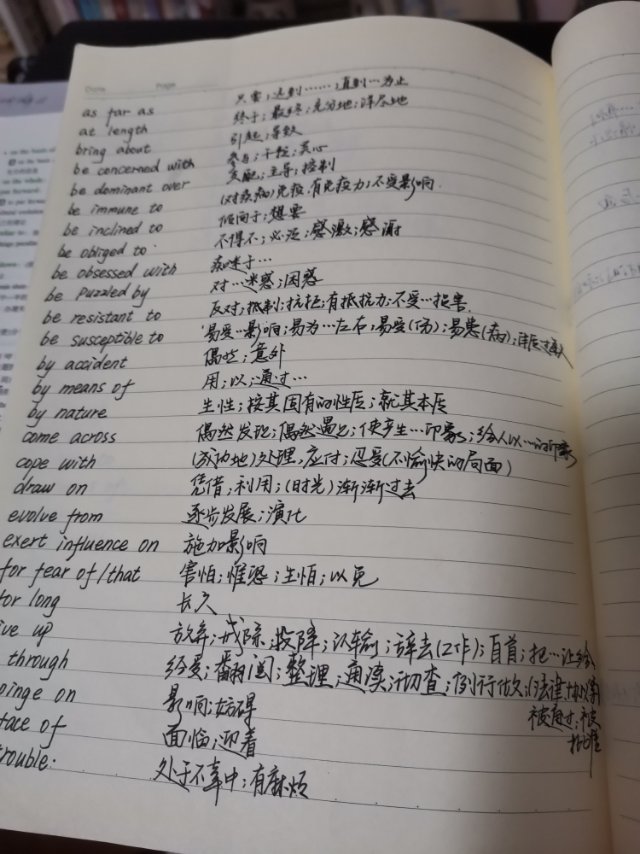 Date Page
as far as 只要；达到……；直到…为止
at length 终于；最终；充分地；详尽地
bring about 引起；导致
be concerned with 参与；干预；关心
be dominant over 支配；主导；控制
be immune to (对疾病)免疫，有免疫力；不受影响
be inclined to 倾向于；想要
be obliged to 不得不；必须；感激；感谢
be obsessed with 痴迷于…
be puzzled by 对…迷惑；困惑
be resistant to 反对；抵制；抗拒；有抵抗力；不受…损害
be susceptible to 易受…影响；易为…左右；易受(伤)；易患(病)；
by accident 偶然；意外
by means of 用；以；通过…
by nature 生性；按其固有的性质；就其本质
come across 偶然发现；偶然遇见；使产生…印象；给人以…的印象
cope with (成功地)处理，应付；忍受(不愉快的局面)
draw on 凭借；利用；(时光)渐渐过去
evolve from 逐步发展；演化
exert influence on 施加影响
for fear of/that 害怕；惟恐；生怕；以免
for long 长久
ive up 放弃；戒除；投降；认输；辞去(工作)；自首；把…让给
through 经受；翻阅；整理；通读；彻查；例行做；(法律
被通过；被批准
pinge on 影响；妨碍
face of 面临；迎着
trouble. 处于不幸中；有麻烦